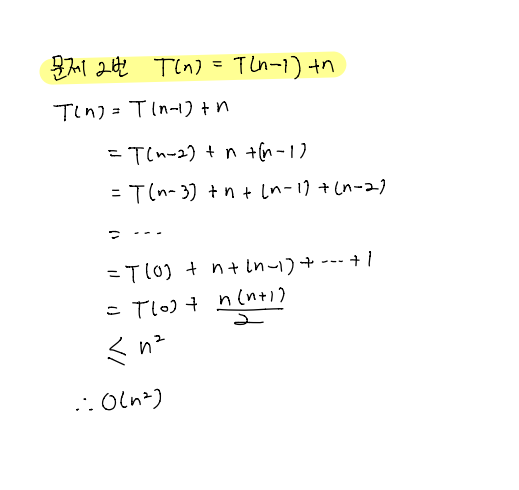 문제 2번 T(n) = T(n-1) + n
T(n) = T(n-1) + n
= T(n-2) + n + (n-1)
= T(n-3) + n + (n-1) + (n-2)
= ...
= T(0) + n + (n-1) + ... + 1
= T(0) + n(n+1)/2
≤ n²
∴ O(n²)